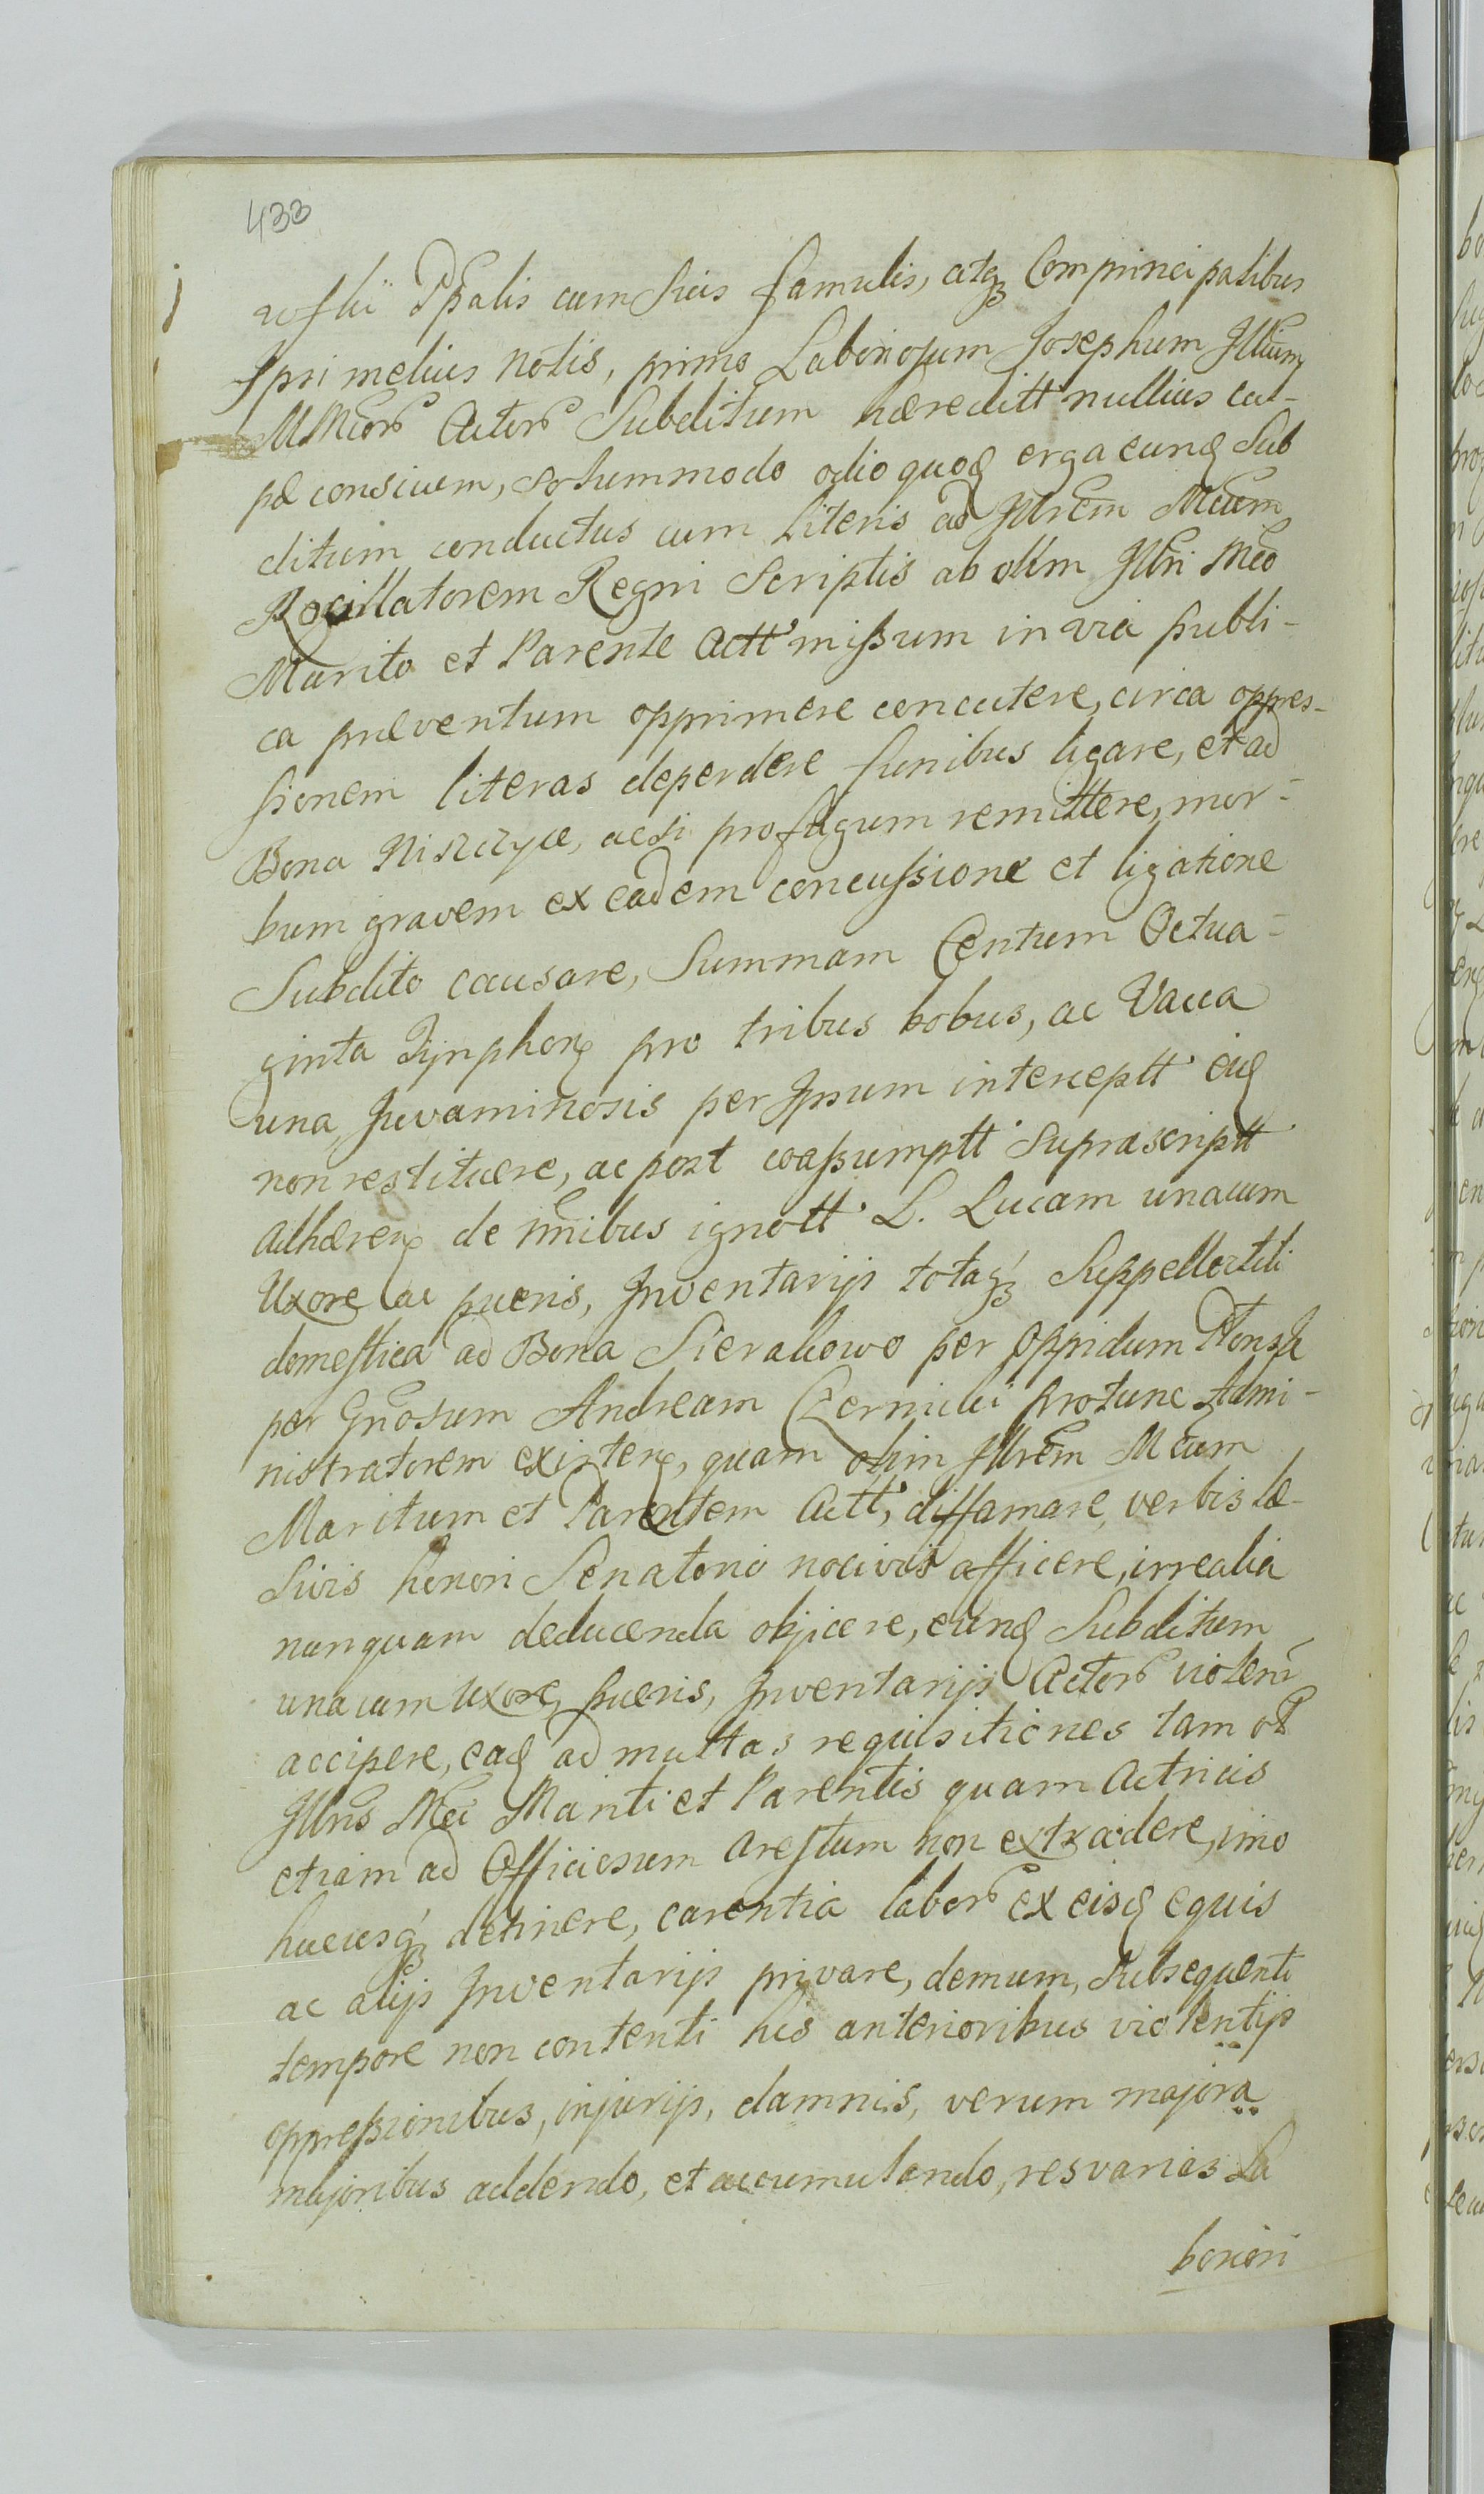 433
wskii Ppalis cum suis famulis, atq3 Comprincipalibus
Ipsi melius notis, primo Laboriosum Josephum Illium
MMcorb Actorb Subditum hæreditt nullius cul-
pæ conscium, solummodo odio quoq erga eunq Sub
ditum conductus cum literis ad Illrem Mcum
Pocillatorem Regni Scriptis ab olim Illri Mco
Marito et Parente Actt missum in via publi-
ca præventum opprimere concutere, circa oppres-
sionem literas deperdere funibus ligare, et ad
Bona Niszczyce, acsi profugum remittere, mor-
bum gravem ex eadem concussione et ligatione
Subdito causare, Summam Centum Octua-
ginta Tynphon pro tribus bobus, ac Vacca
una, Juvaminosis per Ipsum interceptt eiq
non restituere, ac post coassumptt Suprascriptt
adhæren de nnibus ignott L. Lucam unacum
Uxore ac pueris, Inventarijs totaq3 Suppellectili
domestica ad Bona Sierakowo per Oppidum Płonsk
per Gnosum Andream Czernicki protunc Admi-
nistratorem existen, quam olim Illrem Mcum
Maritum et Parentem Actt, diffamare, verbis læ-
sivis honori Senatorio nocivis afficere, irrealia
nunquam deducenda objicere, eunq Subditum
unacum Uxore, pueris, Inventarijs Actorb violenr
accipere, eaq ad multas requisitiones tam ol
Illris Mci Mariti et Parentis quam Actricis
etiam ad Officiosum Arestum non extradere, imo
hucusq3 detinere, carentia laborb ex eisq equis
ac alijs Inventarijs privare, demum, Subsequenti
tempore non contenti his anterioribus violentijs
oppressionibus, injurijs, damnis, verum majora
majoribus addendo, et accumulando, res varias La
boriori